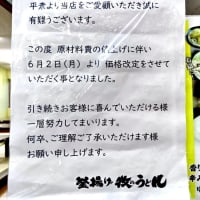 平素より当店をご愛顧いただき誠に
有難うございます。
この度 原材料費の値上げに伴い
6月2日(月)より 価格改定をさせて
いただく事となりました。
引き続きお客様に喜んでいただける様
一層努力してまいります。
何卒、ご理解ご了承いただけます様
お願い申し上げます。